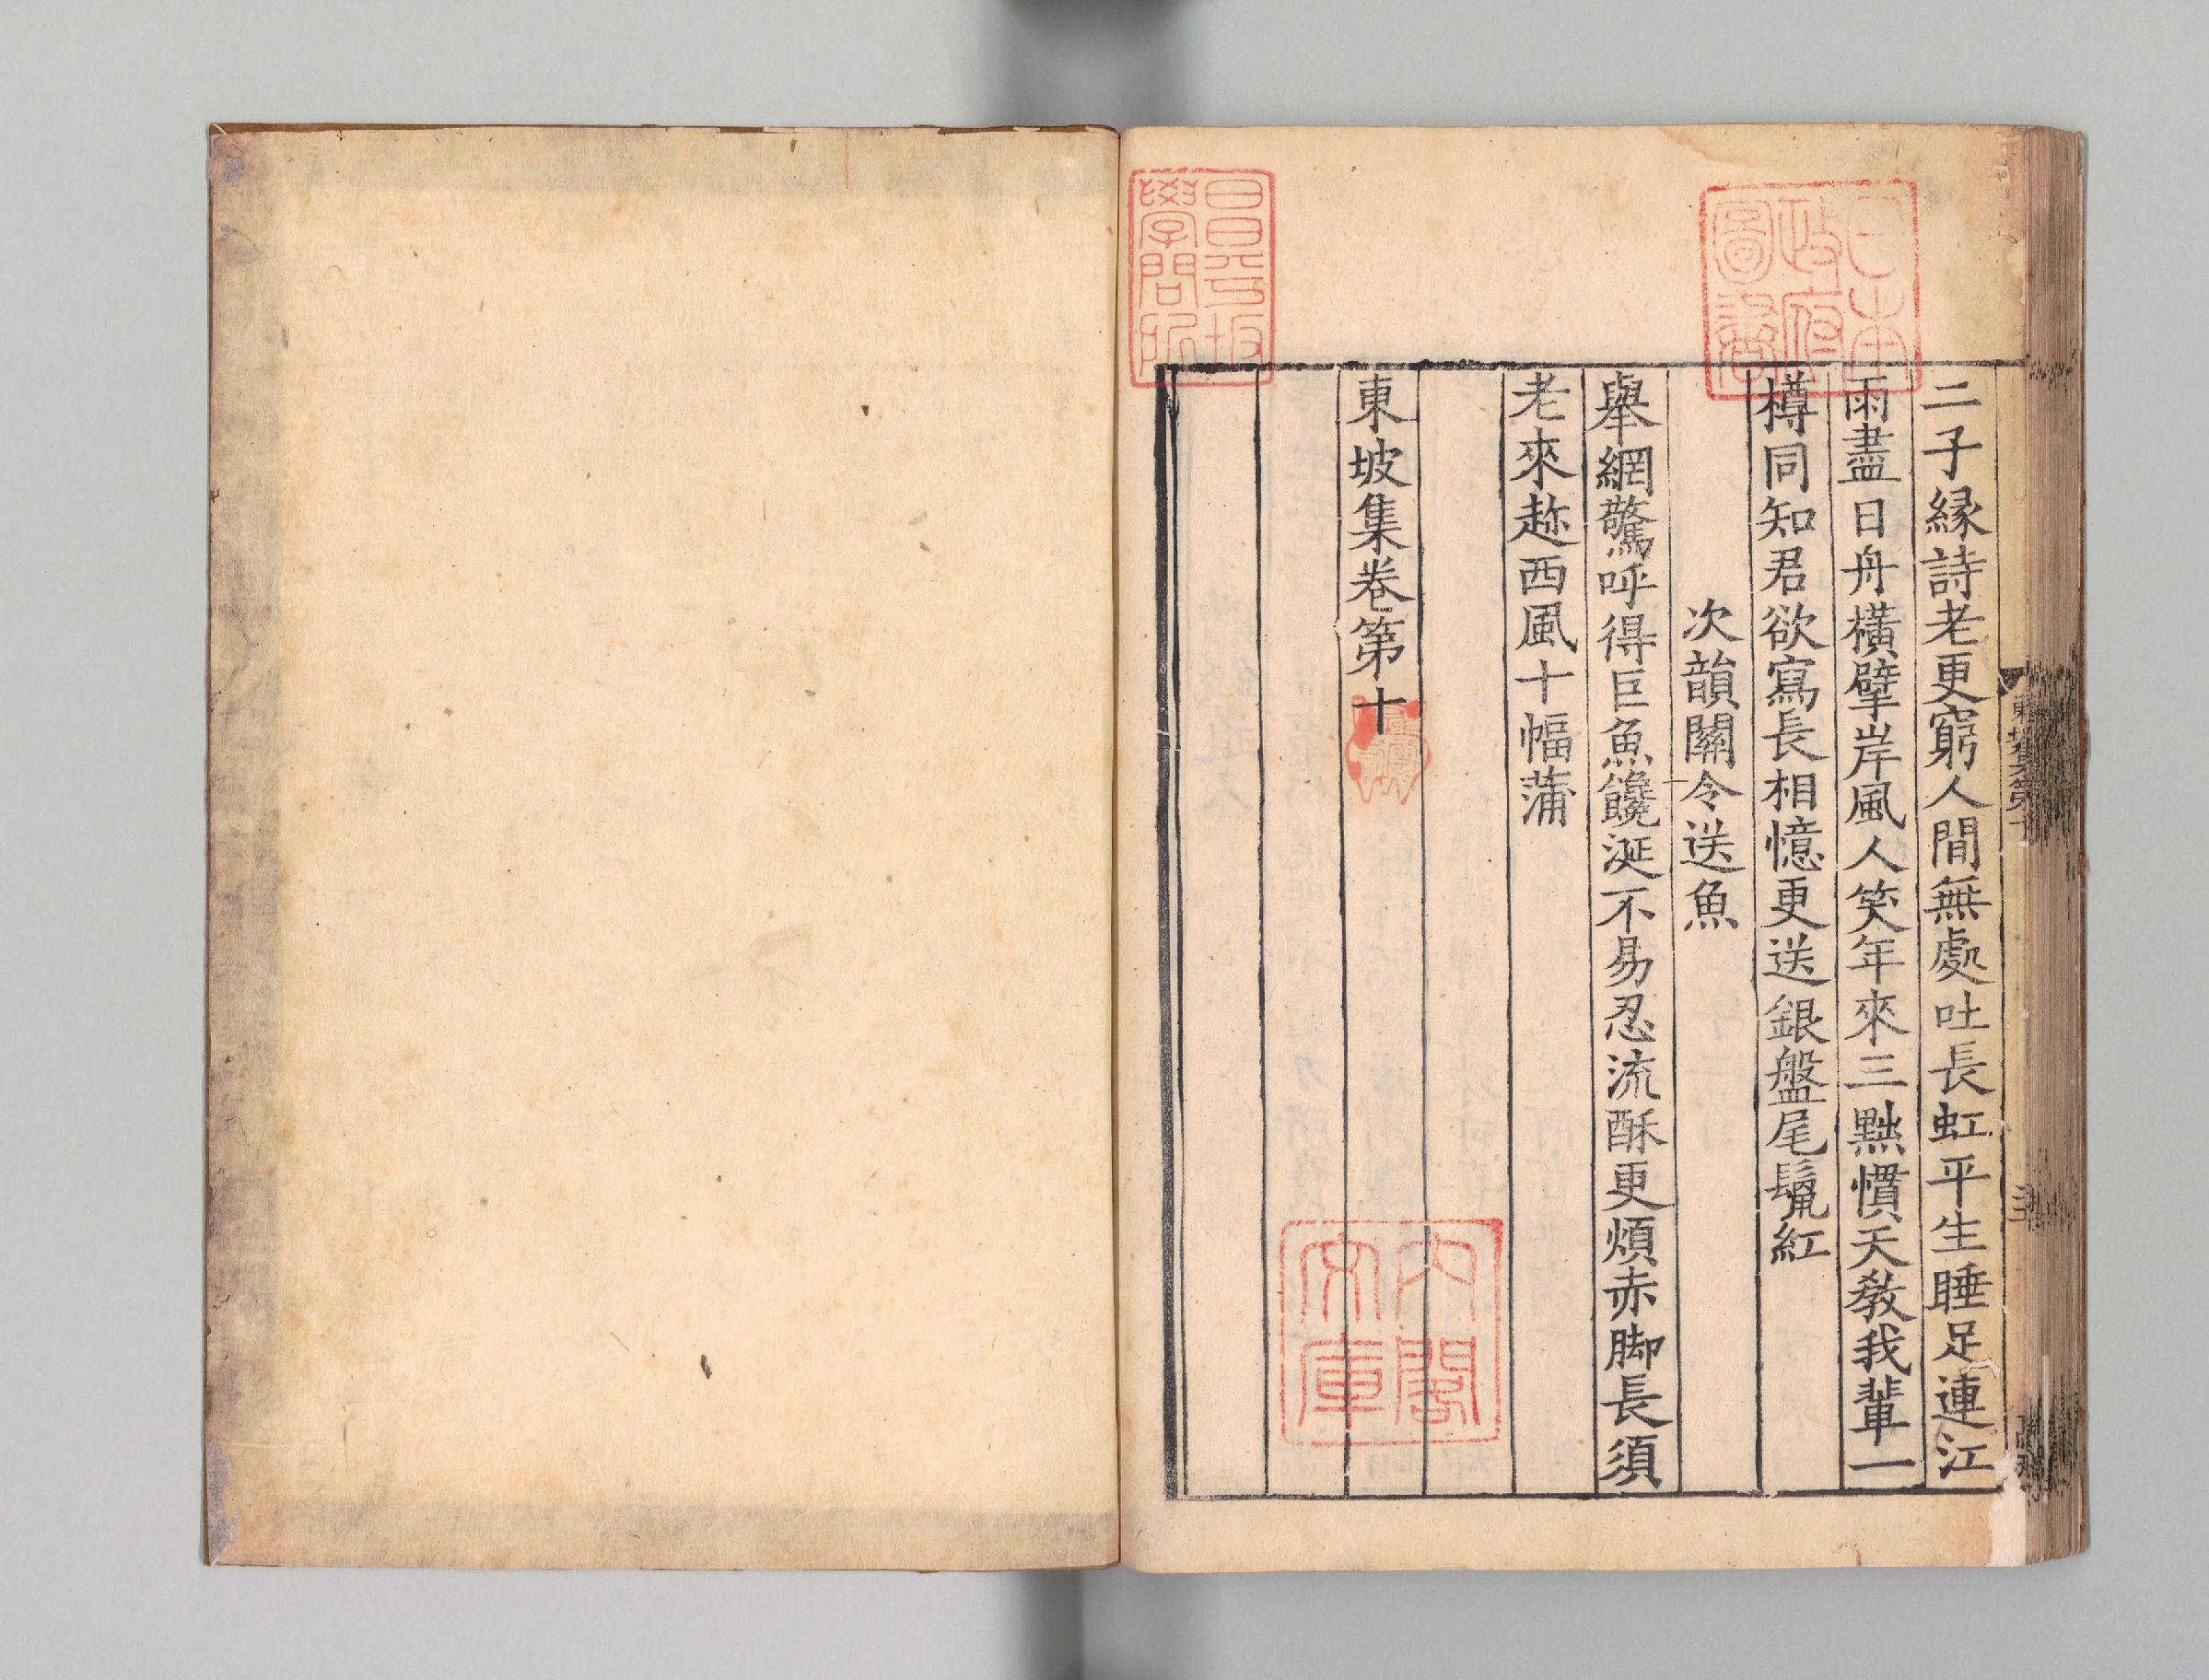 二子緣詩老更窮人間無處吐長虹平生睡足連江
雨盡日舟橫擘岸風人笑年來三黜慣天敎我輩一
樽同知君欲寫長相憶更送銀盤尾鬣紅
次韻關令送魚
舉網驚呼得巨魚饞涎不易忍流酥更煩赤脚長須
老來趂西風十幅蒲
東坡集卷第十
日本
政府
圖書
昌平坂
學問所
內閣
文庫